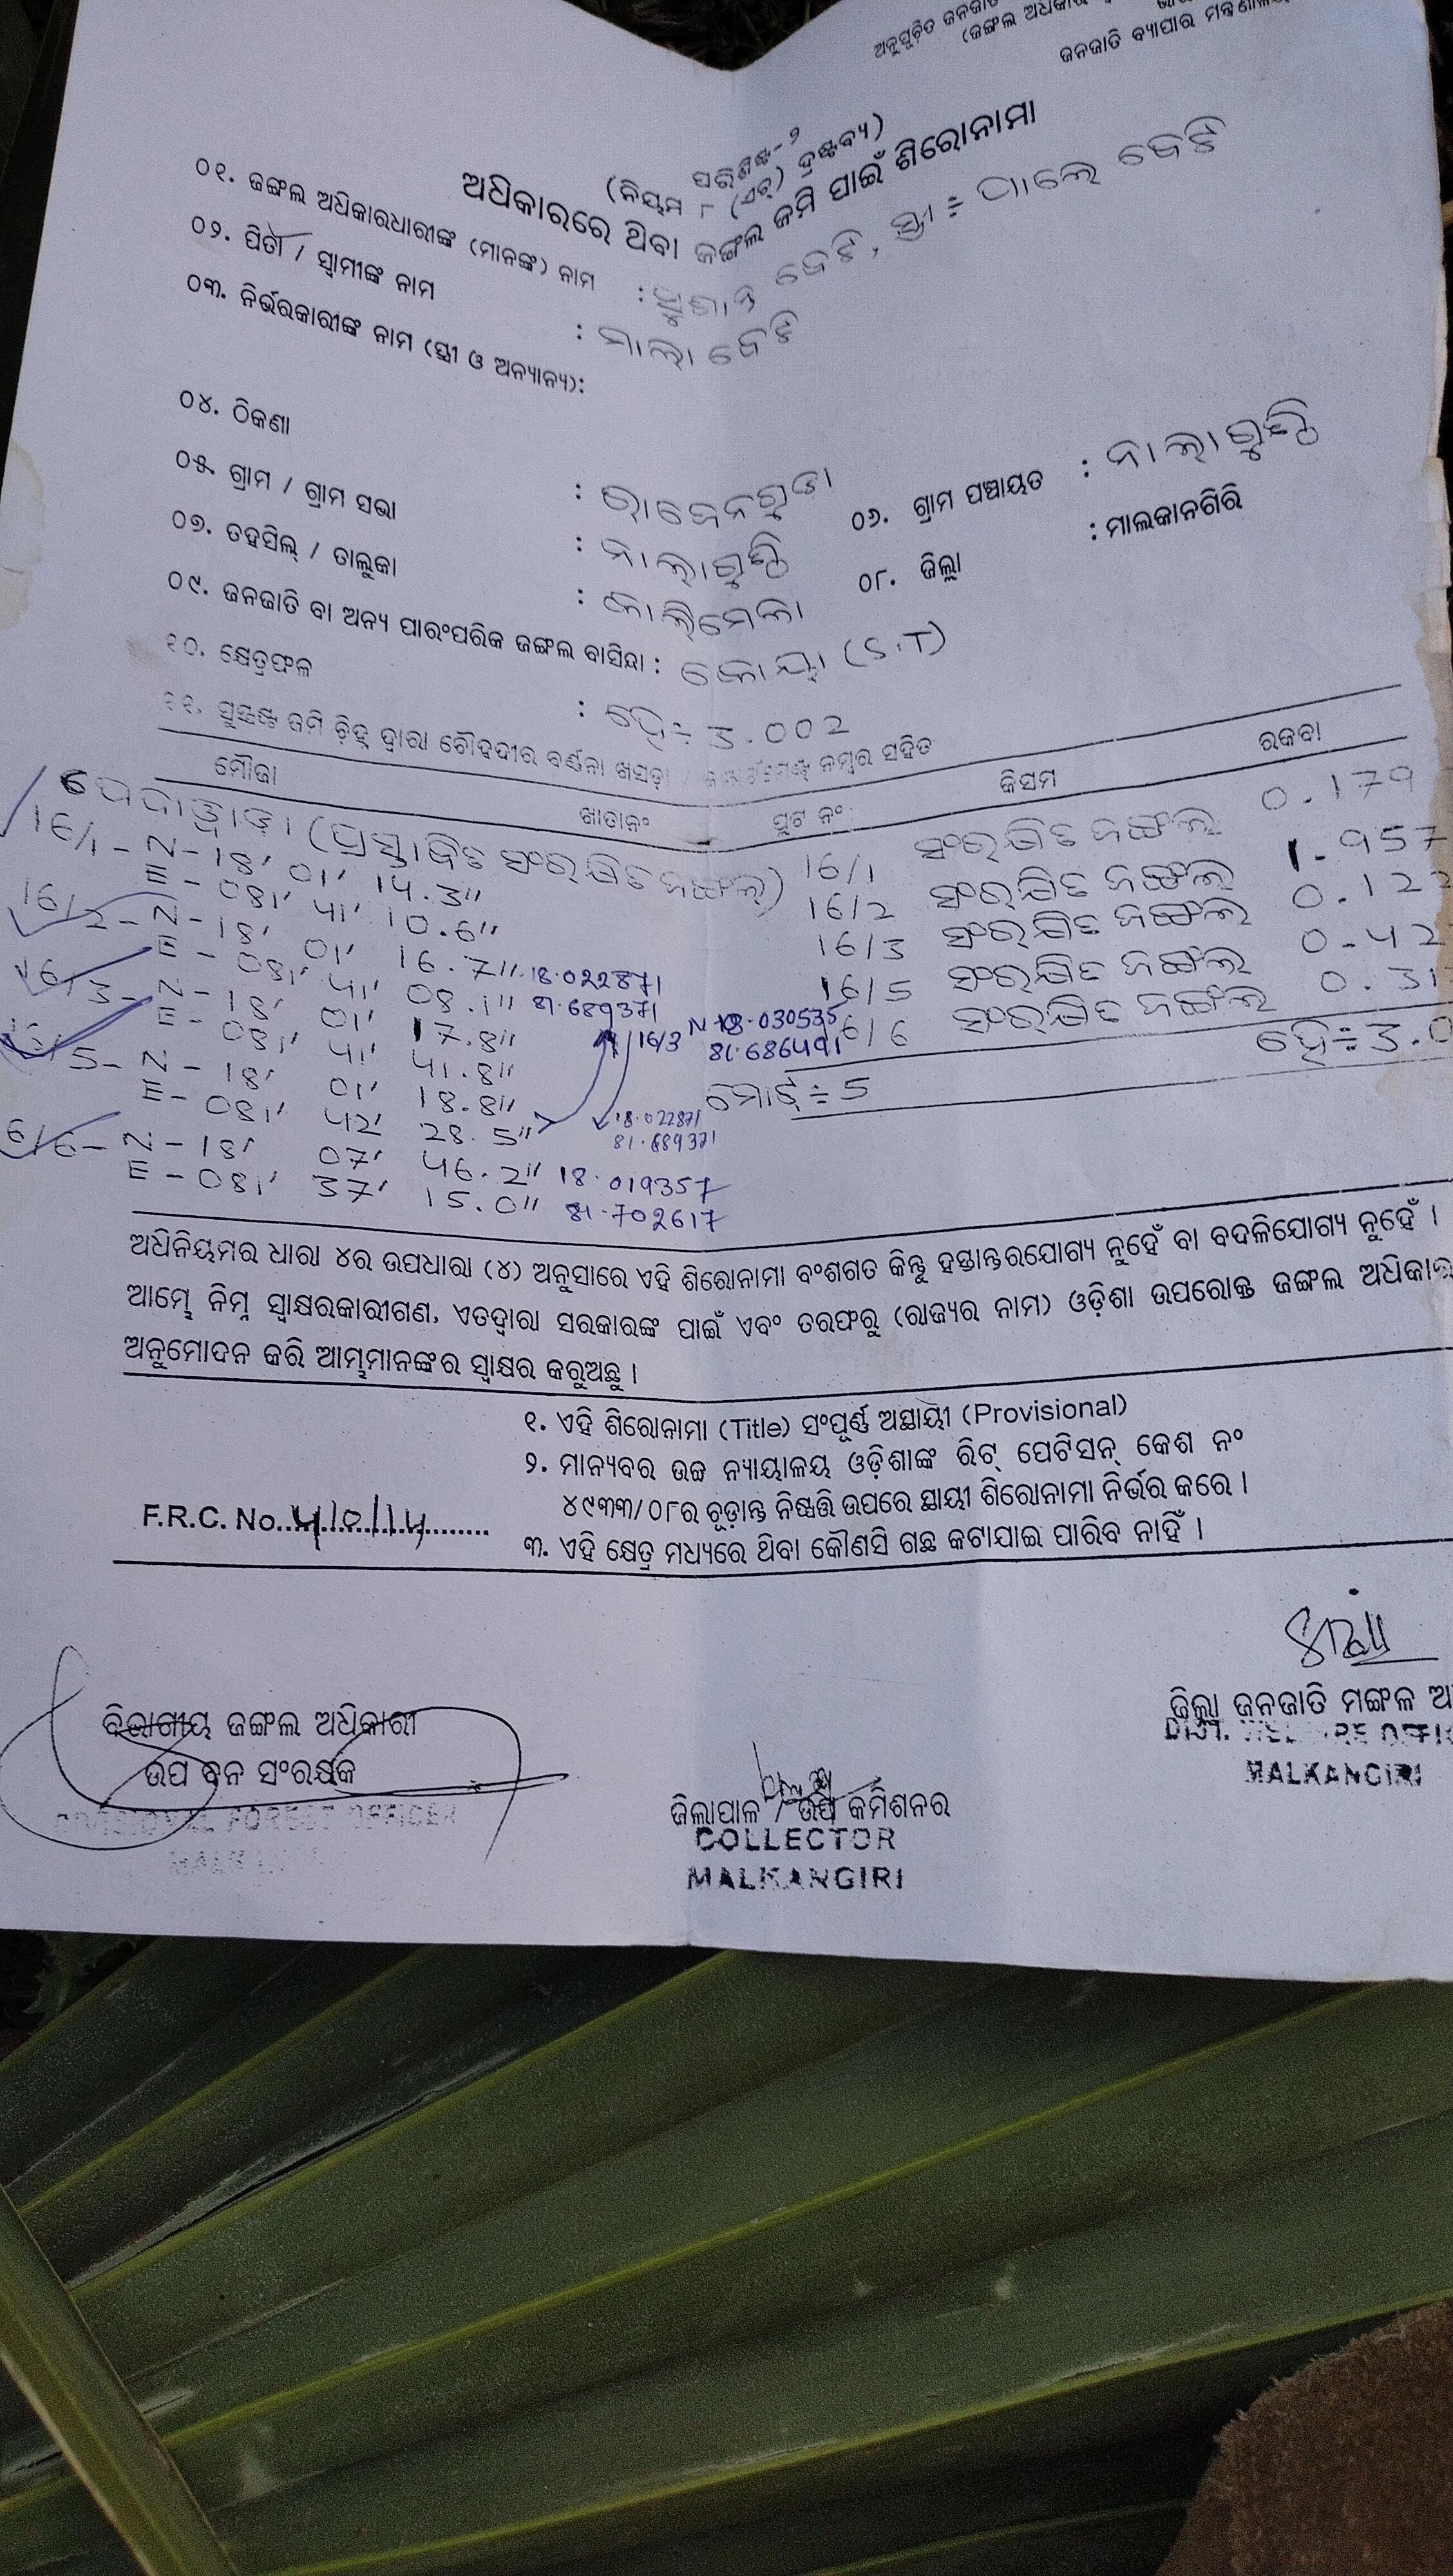 ଅନୁସୂଚିତ ଜନଜାତି
(ଜଙ୍ଗଲ ଅଧିକାର
ଜନଜାତି ବ୍ୟାପାର ମନ୍ତ୍ରଣାଳୟ
ପରିଶିଷ୍ଟ-୨
(ନିୟମ ୮ (ଏଚ୍) ଦ୍ରଷ୍ଟବ୍ୟ)
ଅଧିକାରରେ ଥିବା ଜଙ୍ଗଲ ଜମି ପାଇଁ ଶିରୋନାମା
୦୧. ଜଙ୍ଗଲ ଅଧିକାରଧାରୀଙ୍କ (ମାନଙ୍କ) ନାମ : ବେଟି, ସ୍ତ୍ରୀ ÷ ପାଲେ ବେଟି
୦୨. ପିତା / ସ୍ୱାମୀଙ୍କ ନାମ : ମାଲା ବେଟି
୦୩. ନିର୍ଭରକାରୀଙ୍କ ନାମ (ସ୍ତ୍ରୀ ଓ ଅନ୍ୟାନ୍ୟ):
୦୪. ଠିକଣା
୦୫. ଗ୍ରାମ / ଗ୍ରାମ ସଭା : ୦୬. ଗ୍ରାମ ପଞ୍ଚାୟତ :
୦୭. ତହସିଲ୍ / ତାଲୁକା : ୦୮. ଜିଲ୍ଲା : ମାଲକାନଗିରି
: କାଲିମେଲା
୦୯. ଜନଜାତି ବା ଅନ୍ୟ ପାରଂପରିକ ଜଙ୍ଗଲ ବାସିନ୍ଦା : କୋୟା (S.T)
୧୦. କ୍ଷେତ୍ରଫଳ : ହେ÷ 3.002
୧୧. ସୁସ୍ପଷ୍ଟ ଜମି ଚିହ୍ନ ଦ୍ୱାରା ଚୌହଦୀର ବର୍ଣ୍ଣନା ଖସଡ଼ା / କମ୍ପାର୍ଟମେଣ୍ଟ ନମ୍ବର ସହିତ
ମୌଜା ଖାତାନଂ ପ୍ଲଟ ନଂ କିସମ ରକବା
(ପ୍ରସ୍ତାବିତ ସଂରକ୍ଷିତ ଜଙ୍ଗଲ) 16/1 ସଂରକ୍ଷିତ ଜଙ୍ଗଲ 0.179
16/1 - N - 18' 01' 14.3" 16/2 ସଂରକ୍ଷିତ ଜଙ୍ଗଲ 1.957
E - 081' 41' 10.6" 16/3 ସଂରକ୍ଷିତ ଜଙ୍ଗଲ 0.122
16/2 - N - 18' 01' 16.7" 18.022871 16/5 ସଂରକ୍ଷିତ ଜଙ୍ଗଲ 0.42
E - 081' 41' 08.1" 81.689371 16/6 ସଂରକ୍ଷିତ ଜଙ୍ଗଲ 0.31
16/3 - N - 18' 01' 17.8" 16/3 N 18.030535 ହେ÷3.0
E - 081' 41' 41.8" 81.686491
16/5 - N - 18' 01' 18.8" ମୋଟ÷5
E - 081' 42' 28.5" 18.022871
81.689371
6/6 - N - 18' 07' 46.2" 18.019357
E - 081' 37' 15.0" 81.702617
ଅଧିନିୟମର ଧାରା ୪ର ଉପଧାରା (୪) ଅନୁସାରେ ଏହି ଶିରୋନାମା ବଂଶଗତ କିନ୍ତୁ ହସ୍ତାନ୍ତରଯୋଗ୍ୟ ନୁହେଁ ବା ବଦଳିଯୋଗ୍ୟ ନୁହେଁ ।
ଆମ୍ଭେ ନିମ୍ନ ସ୍ୱାକ୍ଷରକାରୀଗଣ, ଏତଦ୍ୱାରା ସରକାରଙ୍କ ପାଇଁ ଏବଂ ତରଫରୁ (ରାଜ୍ୟର ନାମ) ଓଡ଼ିଶା ଉପରୋକ୍ତ ଜଙ୍ଗଲ ଅଧିକାର
ଅନୁମୋଦନ କରି ଆମ୍ଭମାନଙ୍କର ସ୍ୱାକ୍ଷର କରୁଅଛୁ ।
୧. ଏହି ଶିରୋନାମା (Title) ସଂପୂର୍ଣ୍ଣ ଅସ୍ଥାୟୀ (Provisional)
୨. ମାନ୍ୟବର ଉଚ୍ଚ ନ୍ୟାୟାଳୟ ଓଡ଼ିଶାଙ୍କ ରିଟ୍ ପେଟିସନ୍ କେଶ ନଂ
୪୯୩୩/୦୮ର ଚୂଡ଼ାନ୍ତ ନିଷ୍ପତ୍ତି ଉପରେ ସ୍ଥାୟୀ ଶିରୋନାମା ନିର୍ଭର କରେ ।
F.R.C. No.
୩. ଏହି କ୍ଷେତ୍ର ମଧ୍ୟରେ ଥିବା କୌଣସି ଗଛ କଟାଯାଇ ପାରିବ ନାହିଁ ।
ବିଭାଗୀୟ ଜଙ୍ଗଲ ଅଧିକାରୀ
ଉପ ବନ ସଂରକ୍ଷକ
DIVISIONAL FOREST OFFICER
ଜିଲ୍ଲାପାଳ / ଉପ କମିଶନର
COLLECTOR
MALKANGIRI
ଜିଲ୍ଲା ଜନଜାତି ମଙ୍ଗଳ
DIST. WELFARE OFFIC
MALKANGIRI